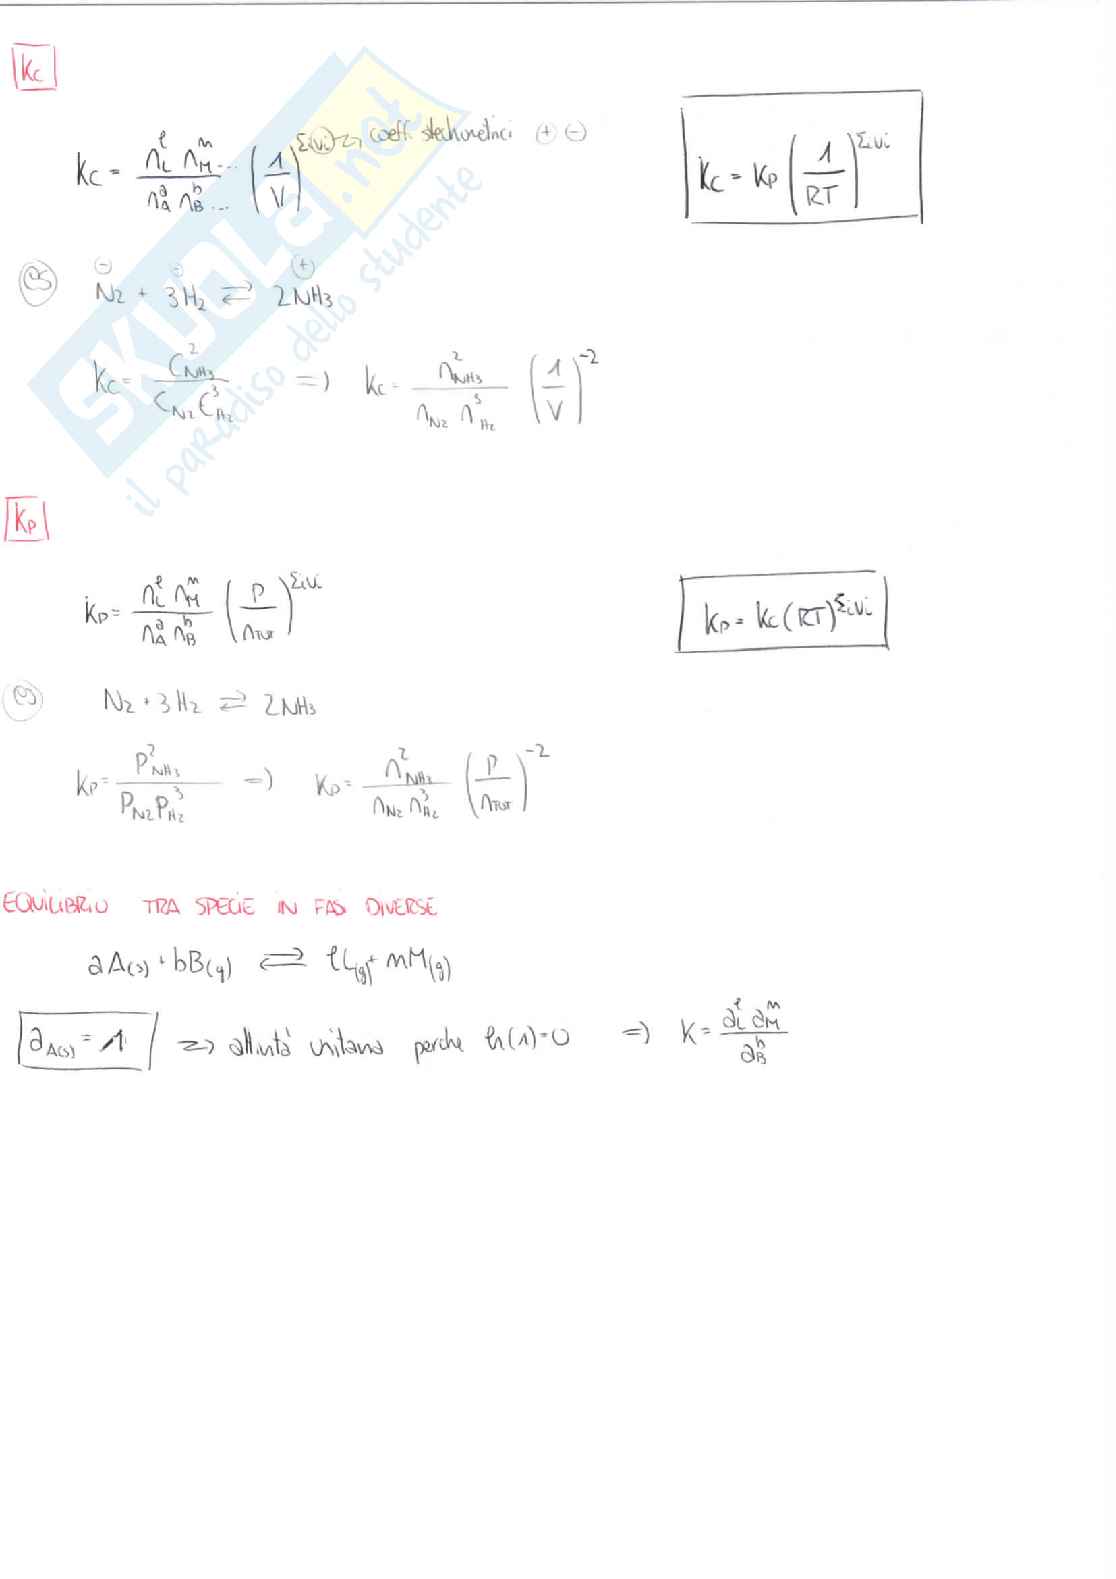 Kc
Kc = n_L^l n_M^m ... / n_A^a n_B^b ... (1/V)^Σiνi => coeff. stechiometrici (+) (-)
Kc = Kp (1/RT)^Σiνi
es (-) (-) (+)
N2 + 3H2 ⇄ 2NH3
Kc = C_NH3^2 / C_N2 C_H2^3 => Kc = n_NH3^2 / n_N2 n_H2^3 (1/V)^-2
Kp
Kp = n_L^l n_M^m / n_A^a n_B^b (P/n_TOT)^Σiνi
Kp = Kc (RT)^Σiνi
es N2 + 3H2 ⇄ 2NH3
Kp = P_NH3^2 / P_N2 P_H2^3 => Kp = n_NH3^2 / n_N2 n_H2^3 (P/n_TOT)^-2
EQUILIBRIO TRA SPECIE IN FASI DIVERSE
aA(s) + bB(g) ⇄ lL(g) + mM(g)
a_A(s) = 1 => attività unitaria perche ln(1)=0 => K = a_L^l a_M^m / a_B^b
SKUOLA.net
il paradiso dello studente